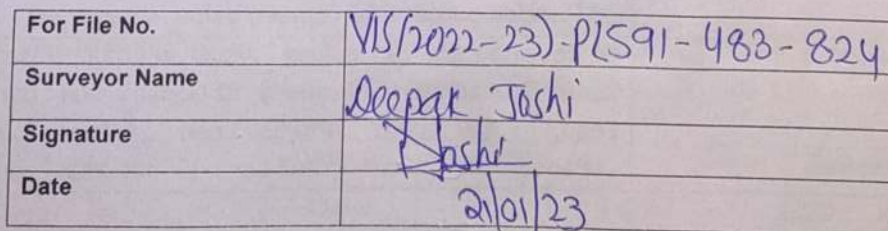 For File No. VIS(2022-23)-PL591-483-824
Surveyor Name Deepak Joshi
Signature Joshi
Date 21/01/23